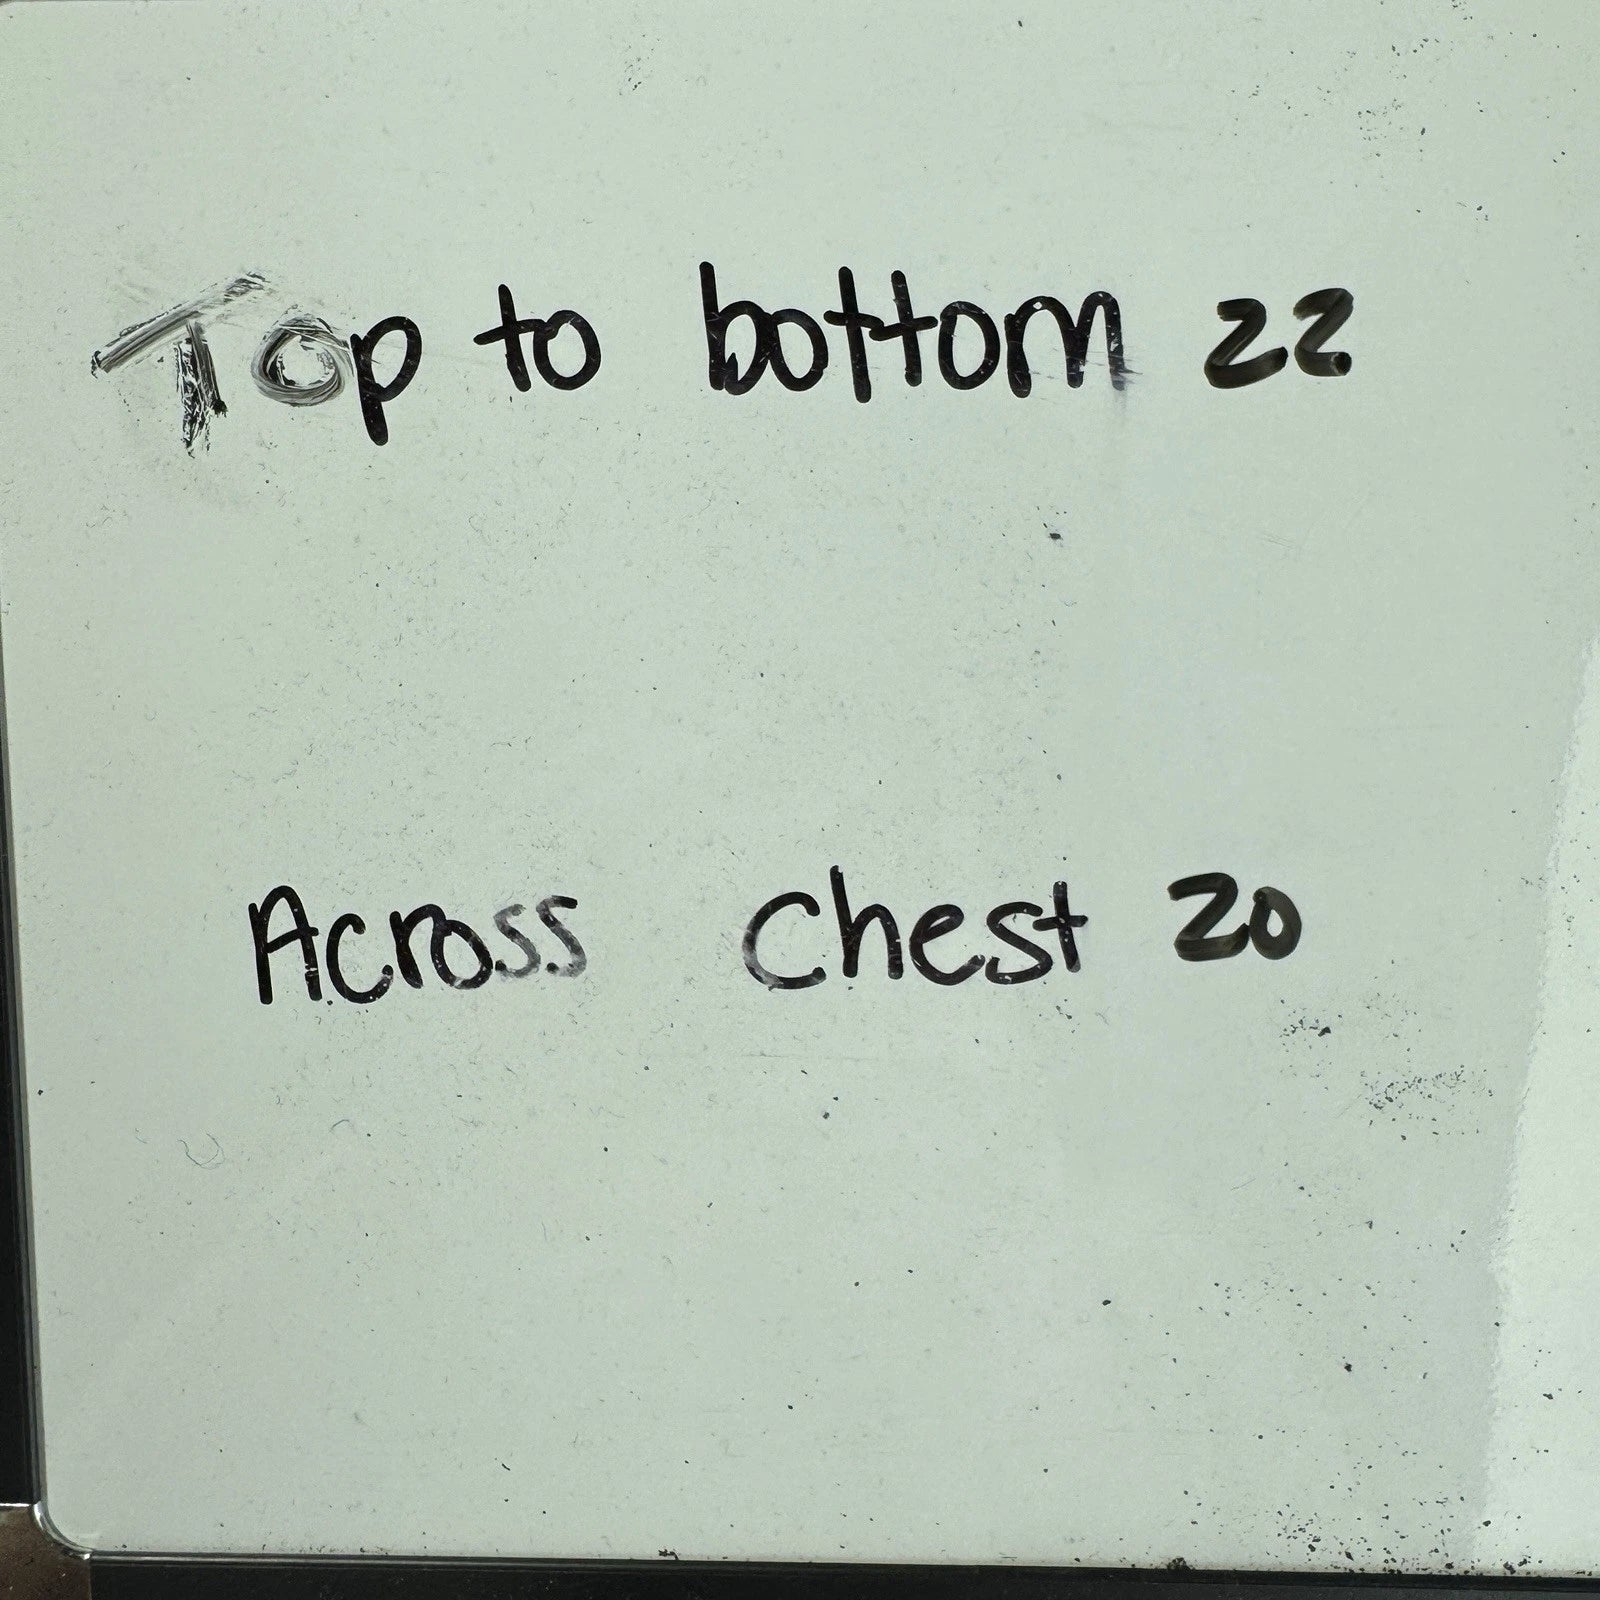 Top to bottom 22
Across chest 20